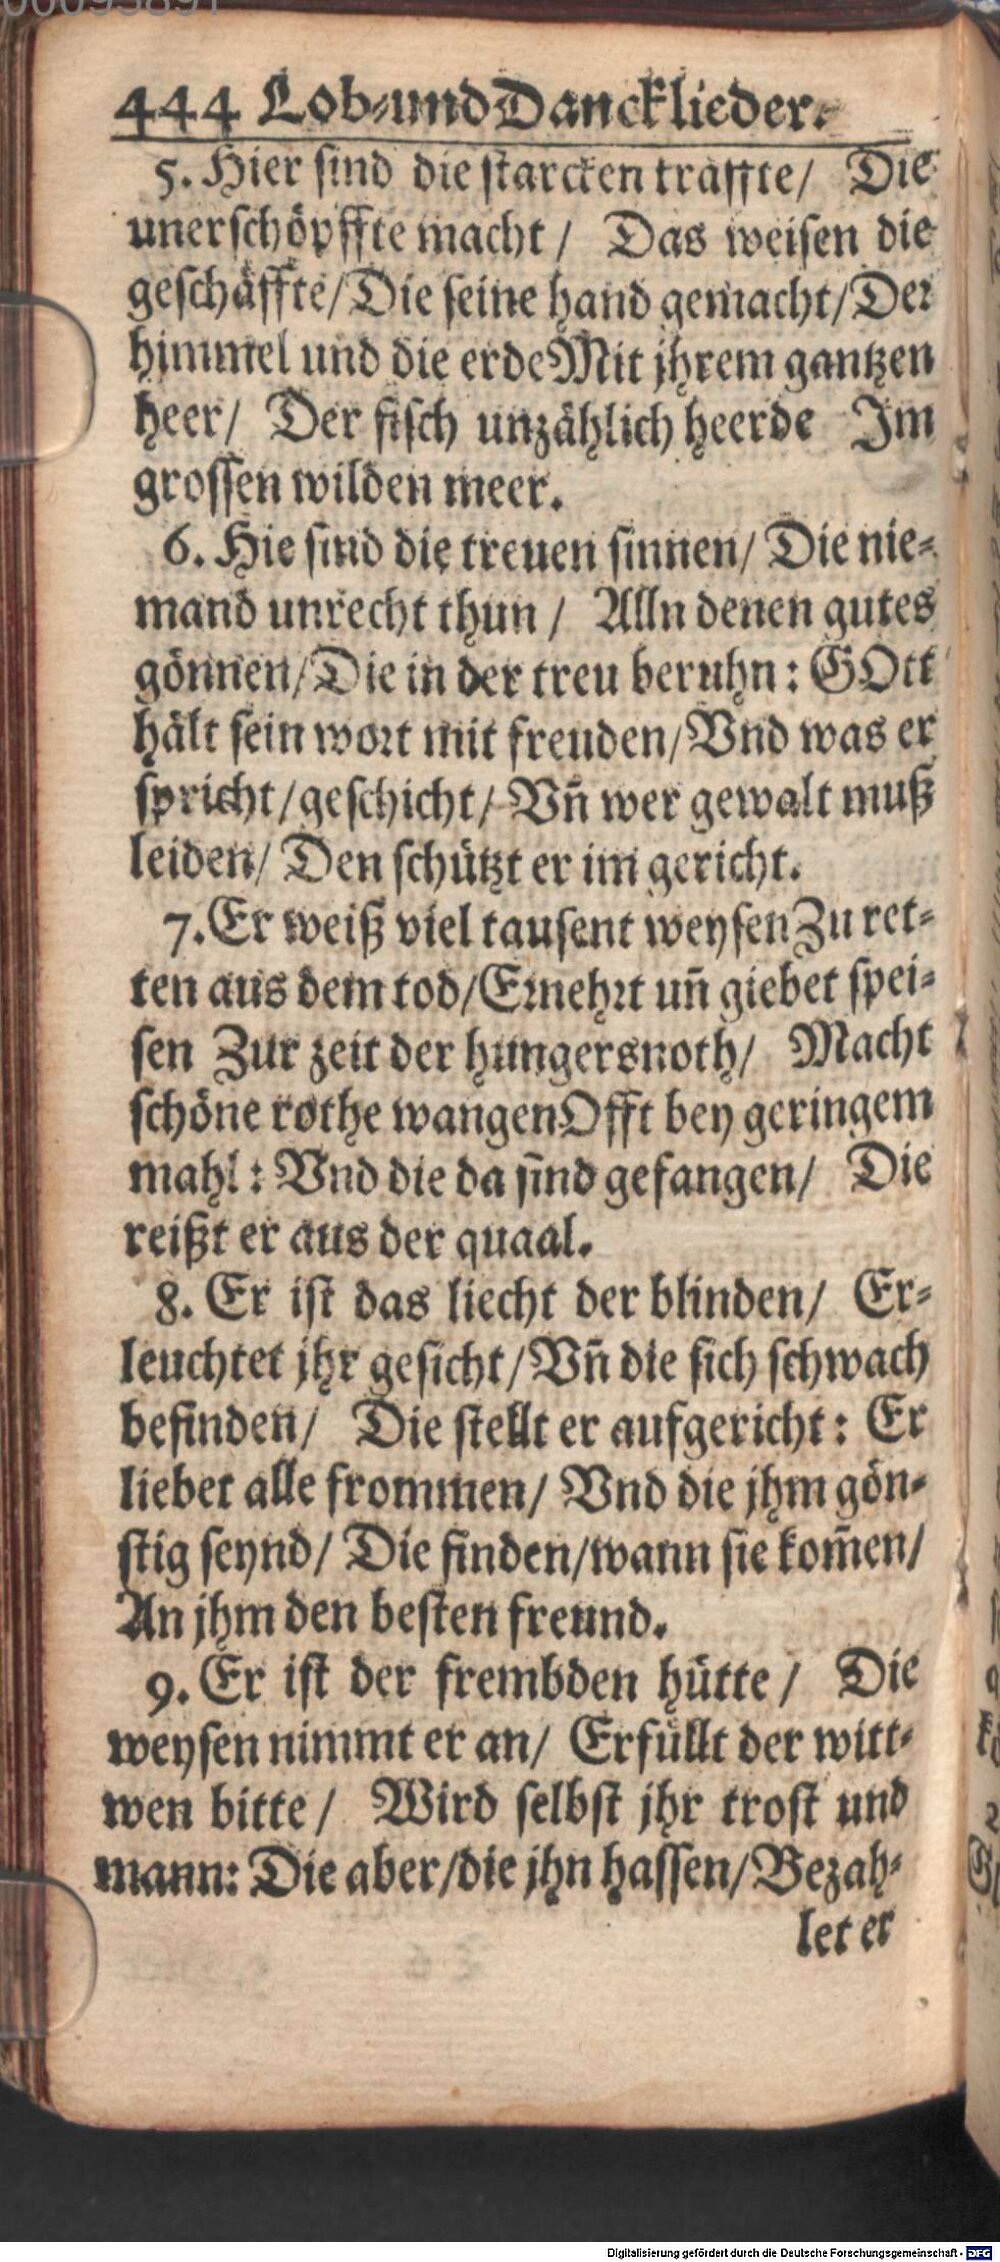 444 Lob-und Dancklieder.
5. Hier sind die starcken kräffte/ Die
unerschöpffte macht / Das weisen die
geschäffte/Die seine hand gemacht/Der
himmel und die erde Mit jhrem gantzen
heer/ Der fisch unzählich heerde Im
grossen wilden meer.
6. Hie sind die treuen sinnen/ Die nie-
mand unrecht thun / Alln denen gutes
gönnen/Die in der treu beruhn: GOtt
hält sein wort mit freuden/Vnd was er
spricht/geschicht/ Vn̄ wer gewalt muß
leiden/ Den schützt er im gericht.
7.Er weiß viel tausent weysen Zu ret-
ten aus dem tod/Ernehrt un̄ giebet spei-
sen Zur zeit der hungersnoth/ Macht
schöne rothe wangen Offt bey geringem
mahl: Vnd die da sind gefangen/ Die
reißt er aus der quaal.
8. Er ist das liecht der blinden/ Er-
leuchtet jhr gesicht/Vn̄ die sich schwach
befinden/ Die stellt er aufgericht: Er
liebet alle frommen/ Vnd die jhm gön-
stig seynd/ Die finden/wann sie kom̄en/
An jhm den besten freund.
9. Er ist der frembden hütte / Die
weysen nimmt er an/ Erfüllt der witt-
wen bitte/ Wird selbst jhr trost und
mann: Die aber/die jhn hassen/Bezah-
let er
Digitalisierung gefördert durch die Deutsche Forschungsgemeinschaft - DFG